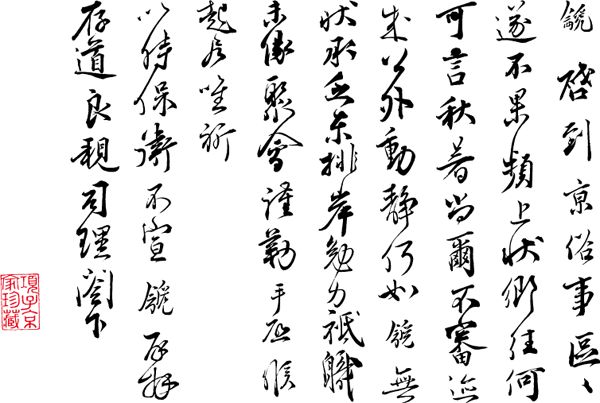 啓到京俗事區區
遂不果頻上狀鄉往何
可言秋暑尚爾不審邇
來公外動靜何如 無
狀承乏東排岸勉力祗職
未像聚會謹勒手啓候
起居唯祈
以時保衛不宣 啓拜
存道良親司理閣下
項子京
家珍藏